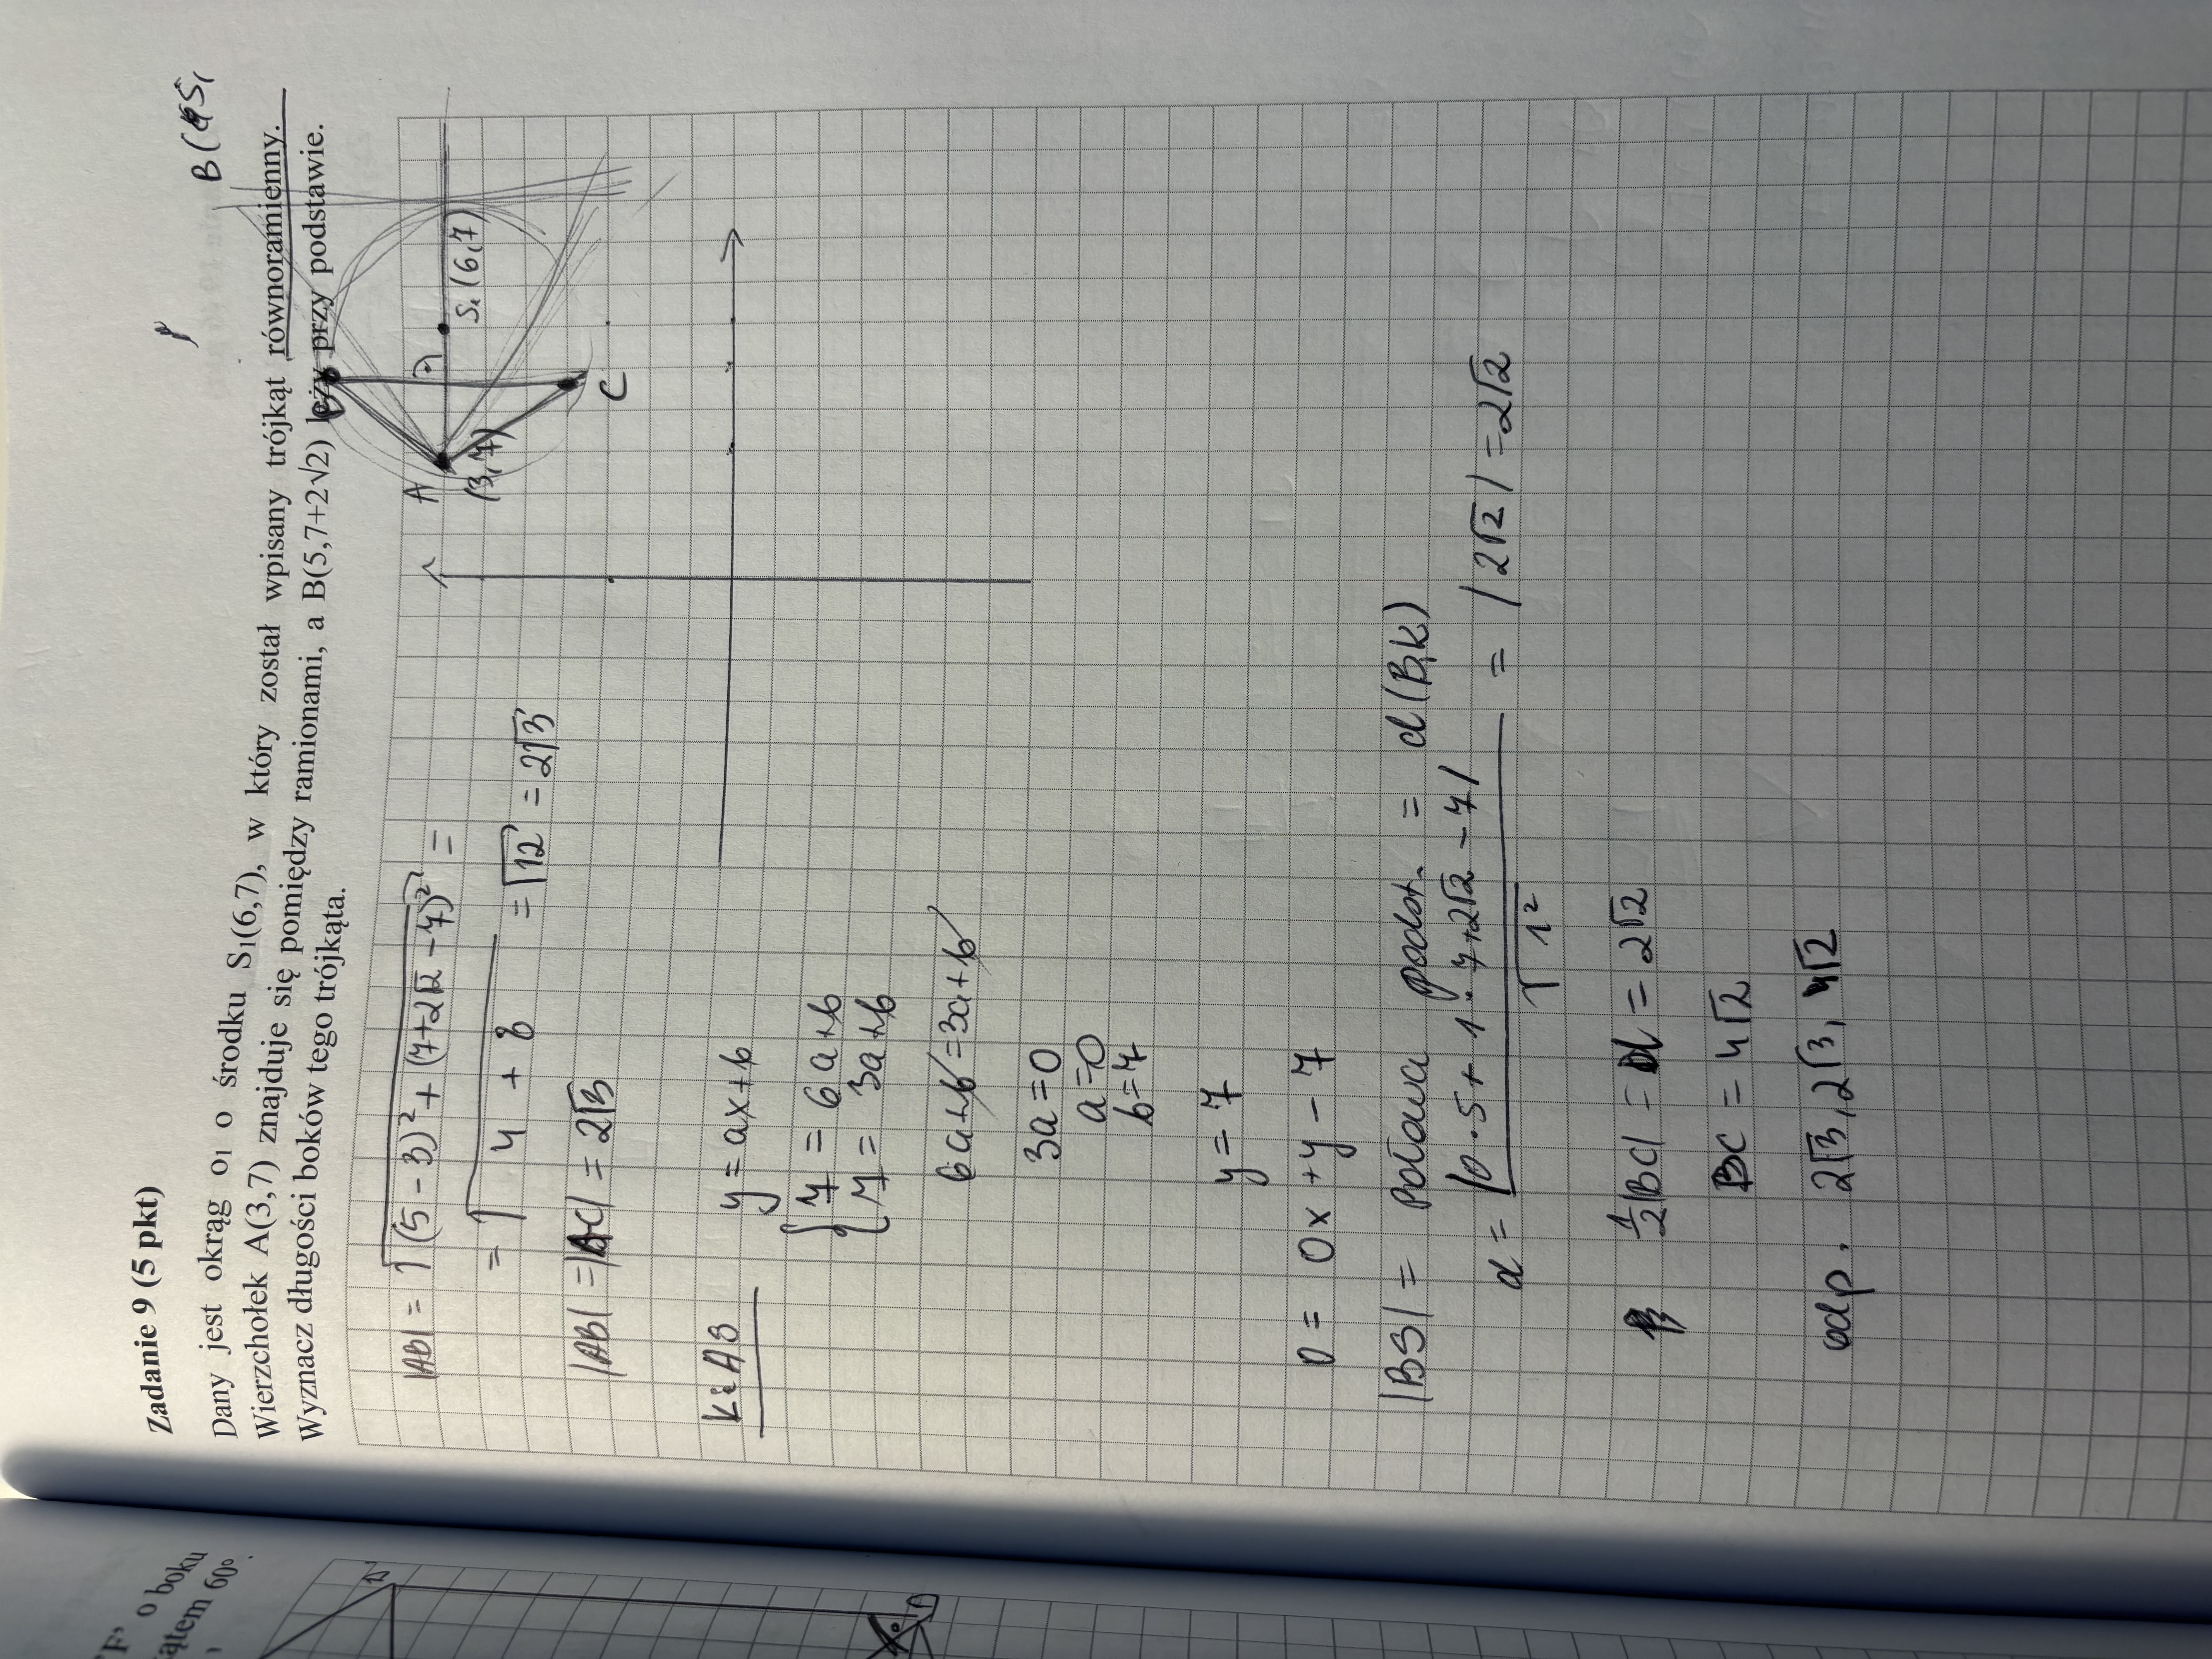 Zadanie 9 (5 pkt)
Dany jest okrąg o₁ o środku S₁(6,7), w który został wpisany trójkąt równoramienny.
Wierzchołek A(3,7) znajduje się pomiędzy ramionami, a B(5,7+2√2) leży przy podstawie.
Wyznacz długości boków tego trójkąta.
B(
S₁
|AB| = √(5-3)² + (7+2√2-7)² =
= √4 + 8 = √12 = 2√3
|AB| = |AC| = 2√3
A
(3,7)
S₁(6,7)
B
C
k: AB
y = ax+b
{ 7 = 6a+b
7 = 3a+b
6a+b = 3a+b
3a = 0
a = 0
b = 7
y = 7
0 = 0x + y - 7
|BS| = Połowa podst. = d(B,k)
d = |0·5 + 1·7+2√2 - 7| / √1² = |2√2| = 2√2
½|BC| = d = 2√2
BC = 4√2
odp. 2√3, 2√3, 4√2
"F' o boku
kątem 60°.